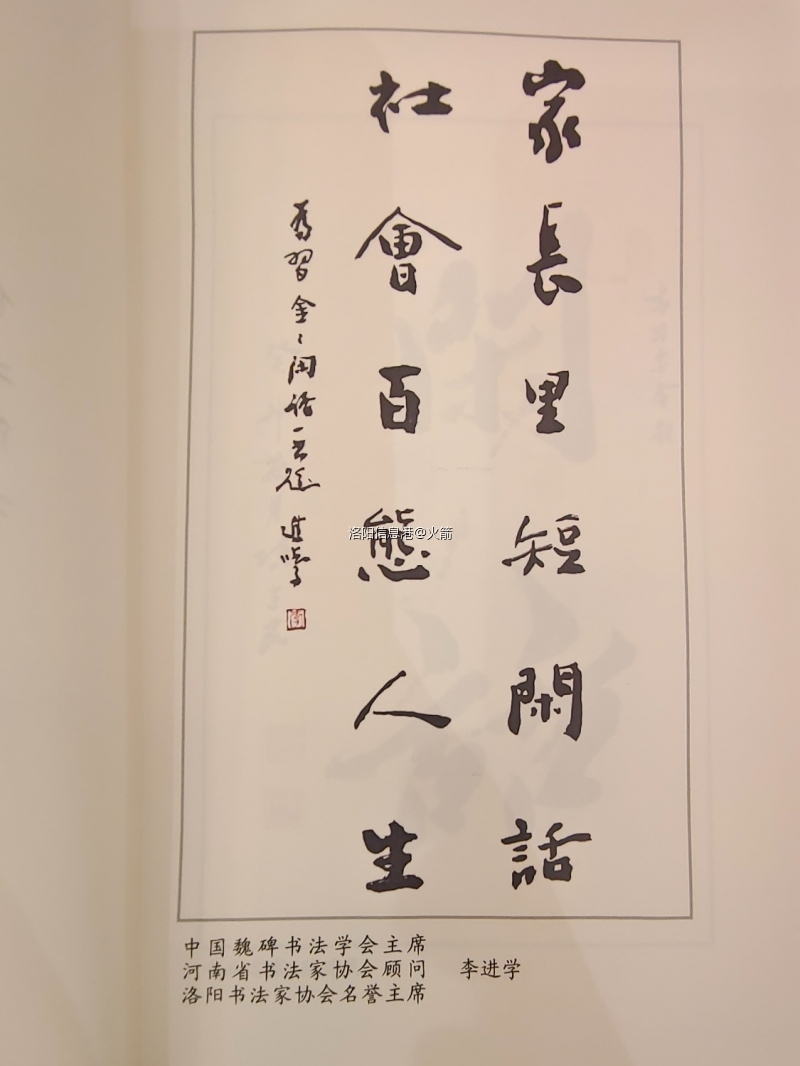 家長里短閑話
社會百態人生
為習金〻閑話一書題 進學
洛阳信息港@火箭
中国魏碑书法学会主席
河南省书法家协会顾问 李进学
洛阳书法家协会名誉主席